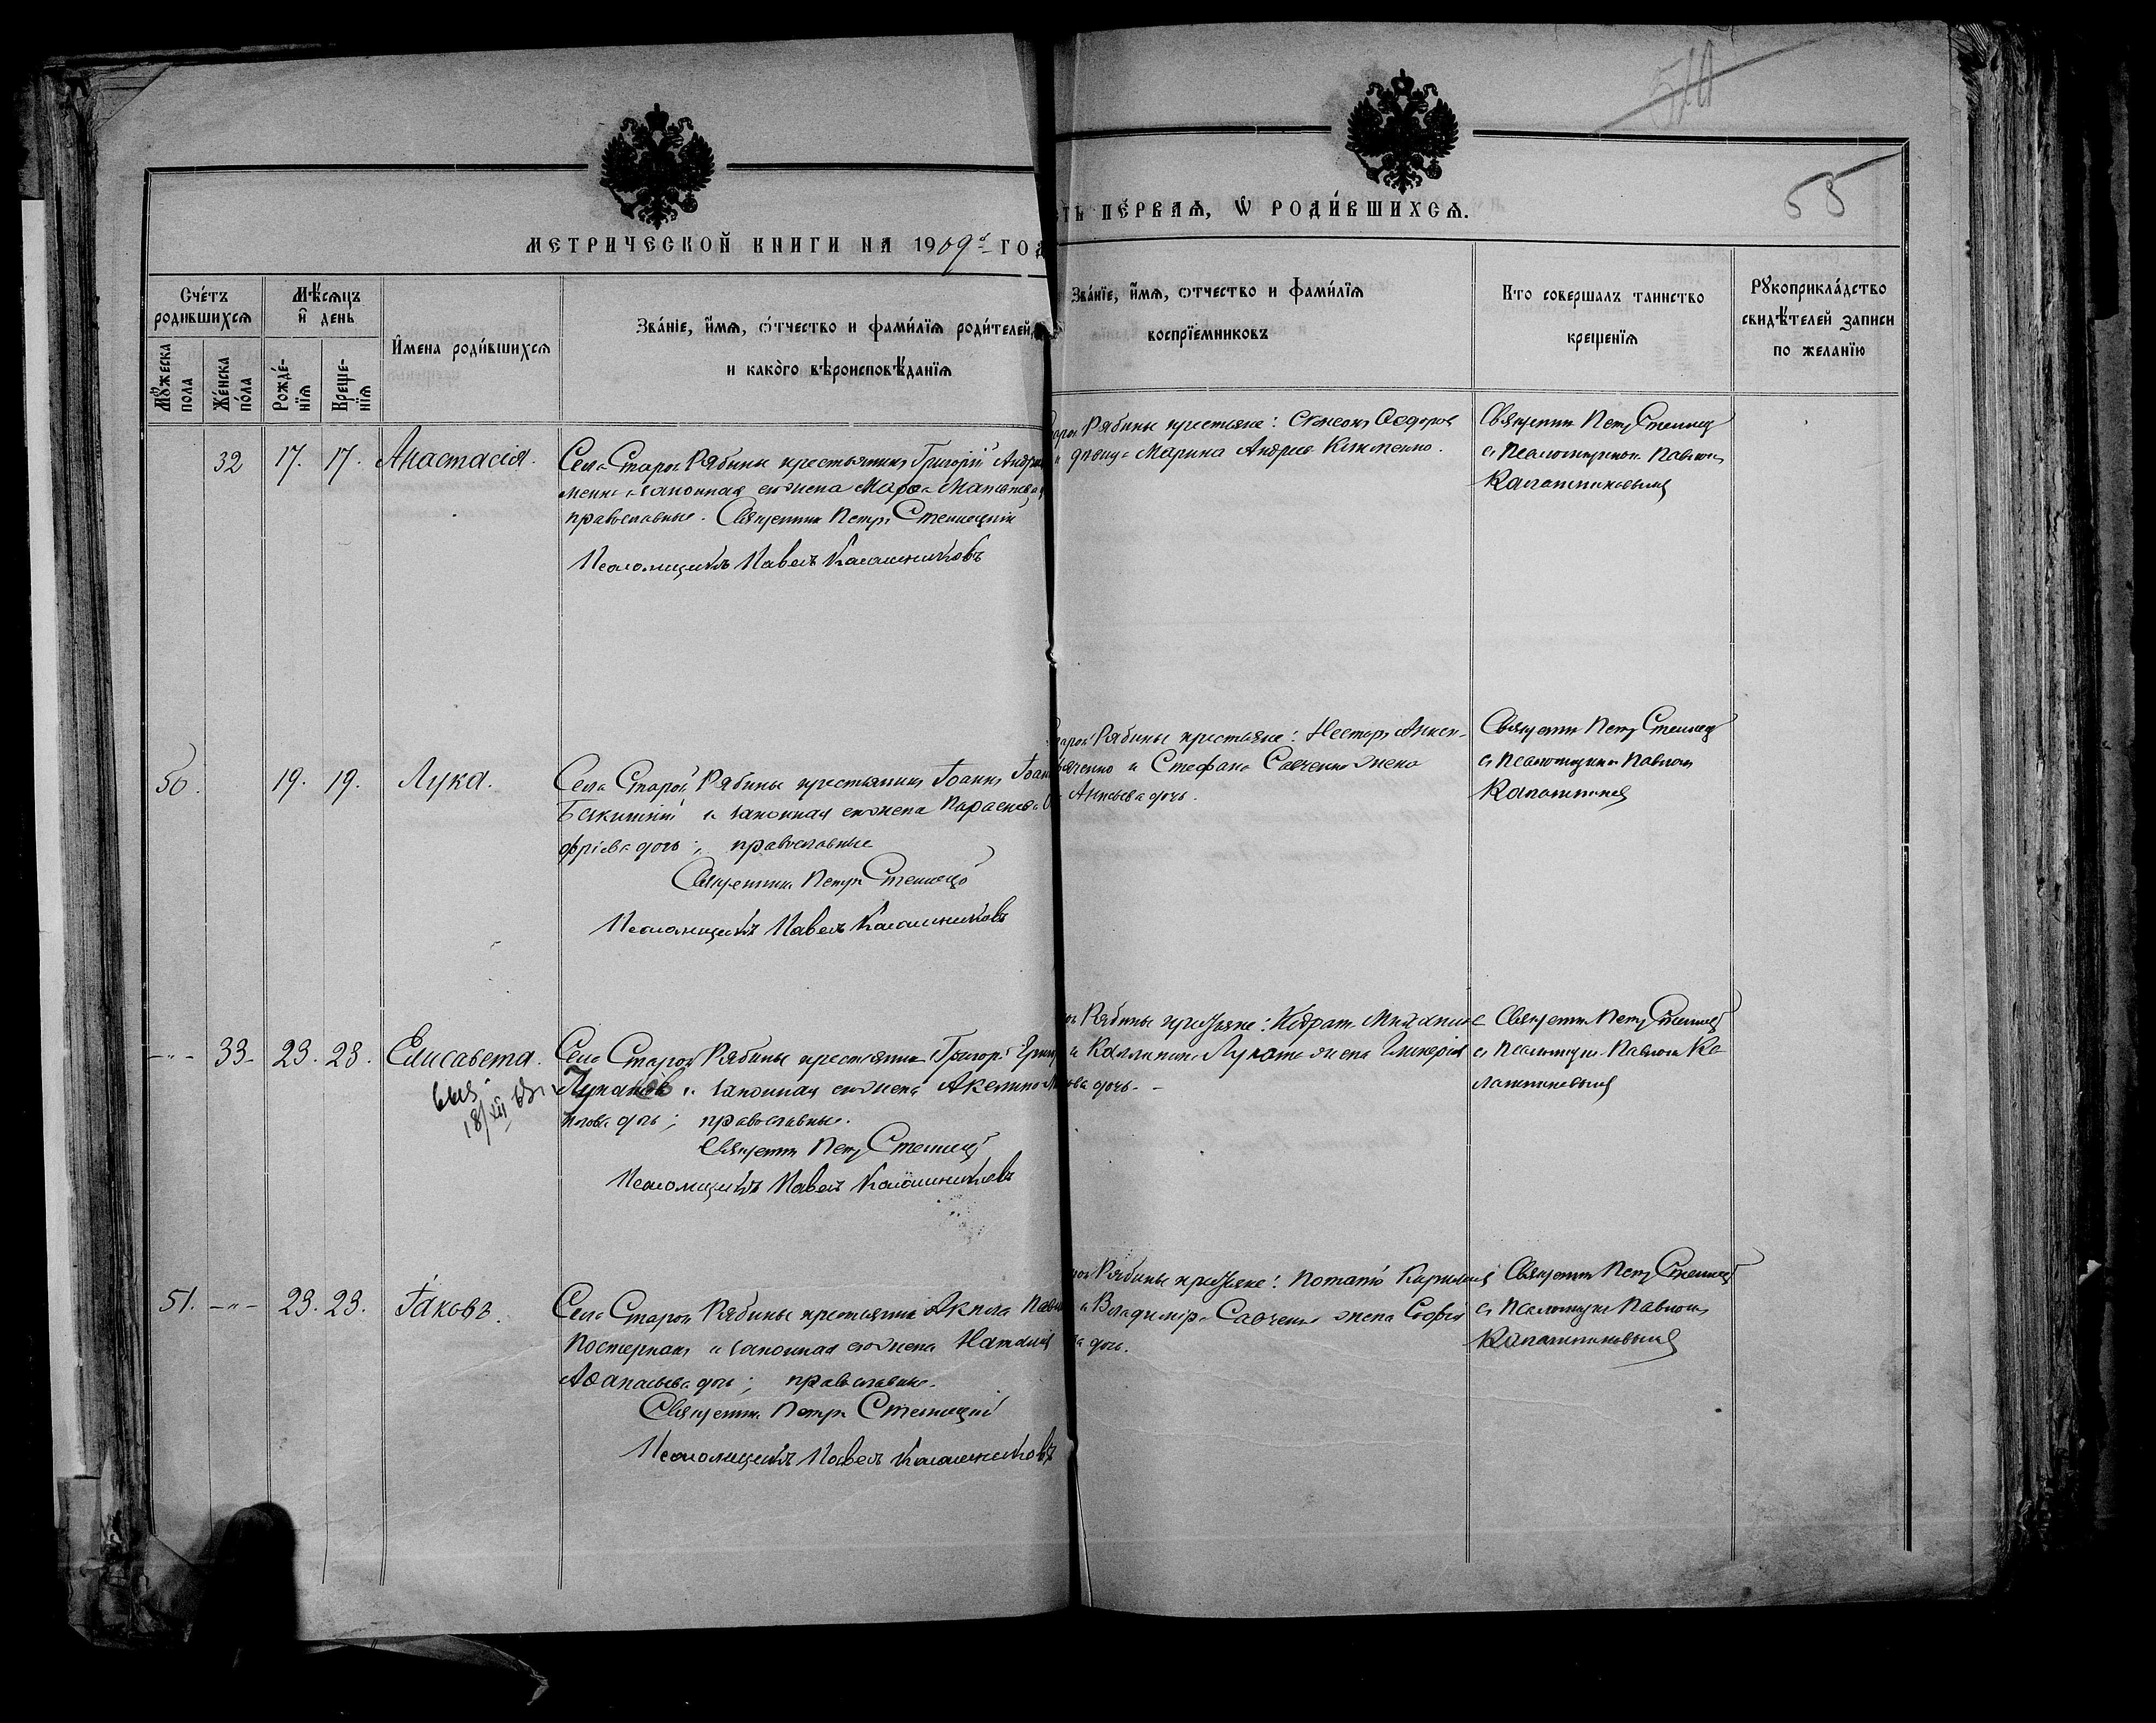 510
55
МЕТРИЧЕСКОЙ КНИГИ НА 1909й ГОД
ТЬ ПЕ́РВАѦ, Ѡ РОДИ́ВШИХСѦ.
Сче́тъ родившихсѧ
Мѣ́сѧцъ и҆ день
Мꙋ́жеска пола
Же́нска по́ла
Рожде́нїѧ
Креще́нїѧ
И҆мена роди́вшихсѧ
Зва́нїе, и҆́мѧ, ѻ҆́тчество и фами́лїѧ роди́телей,
и како́го вѣроисповѣ́данїѧ
Зва́нїе, и҆́мѧ, ѻтчество и фами́лїѧ
воспрїе́мниковъ
Кто совершалъ таинство
креще́нїѧ
Рꙋкоприкла́дство
свидѣ́телей записи
по жела́нїю
32 17. 17. Анастасія.
Села Старой Рябины крестьянинъ Григорій Андре
менко и законная его жена Марѳа Матвѣева
православные. Священникъ Петръ Стеллецкій
Псаломщикъ Павелъ Калашниковъ
Рябины крестьяне: Симеонъ Ѳеодоров
дѣвица Марина Андреев Клименко.
Священникъ Петръ Стеллецк
съ Псаломщикомъ Павломъ
Калашниковымъ
50. 19. 19. Лука.
Села Старой Рябины крестьянинъ Іоаннъ Іоан
и законная его жена Параскева
фріева дочь; православные
Священникъ Петръ Стеллецкій
Псаломщикъ Павелъ Калашниковъ
Рябины крестьяне: Несторъ
и Стефана Савченко жена
дочь.
Священникъ Петръ Стеллецк
съ Псаломщикомъ Павломъ
Калашников
-"- 33- 23. 23. Елисавета.
18/XII
Села Старой Рябины крестьянинъ Григорій
и законная его жена Акилина
дочь; православные.
Священникъ Петръ Стеллецкій
Псаломщикъ Павелъ Калашниковъ
Рябины крестьяне:
жена Гликерія
дочь.-
Священникъ Петръ Стеллецк
съ Псаломщик. Павломъ Ка
лашниковымъ
51. -"- 23. 23. Іаковъ.
Села Старой Рябины крестьянинъ Акила Павл
и законная его жена Наталія
Аѳанасьева дочь; православные.
Священникъ Петръ Стеллецкій
Псаломщикъ Павелъ Калашниковъ
Рябины крестьяне: Потапій Кирилловъ
и Владиміра Савченко жена Софія
дочь.
Священникъ Петръ Стеллецк
съ Псаломщик. Павломъ
Калашниковымъ